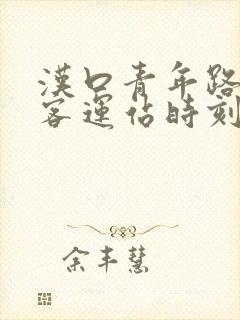 漢口青年路
客運佔時刻
余丰慧